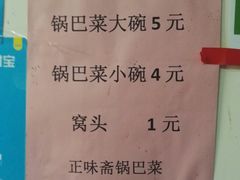 锅巴菜大碗 5 元
锅巴菜小碗 4 元
窝头 1 元
正味斋锅巴菜
宝